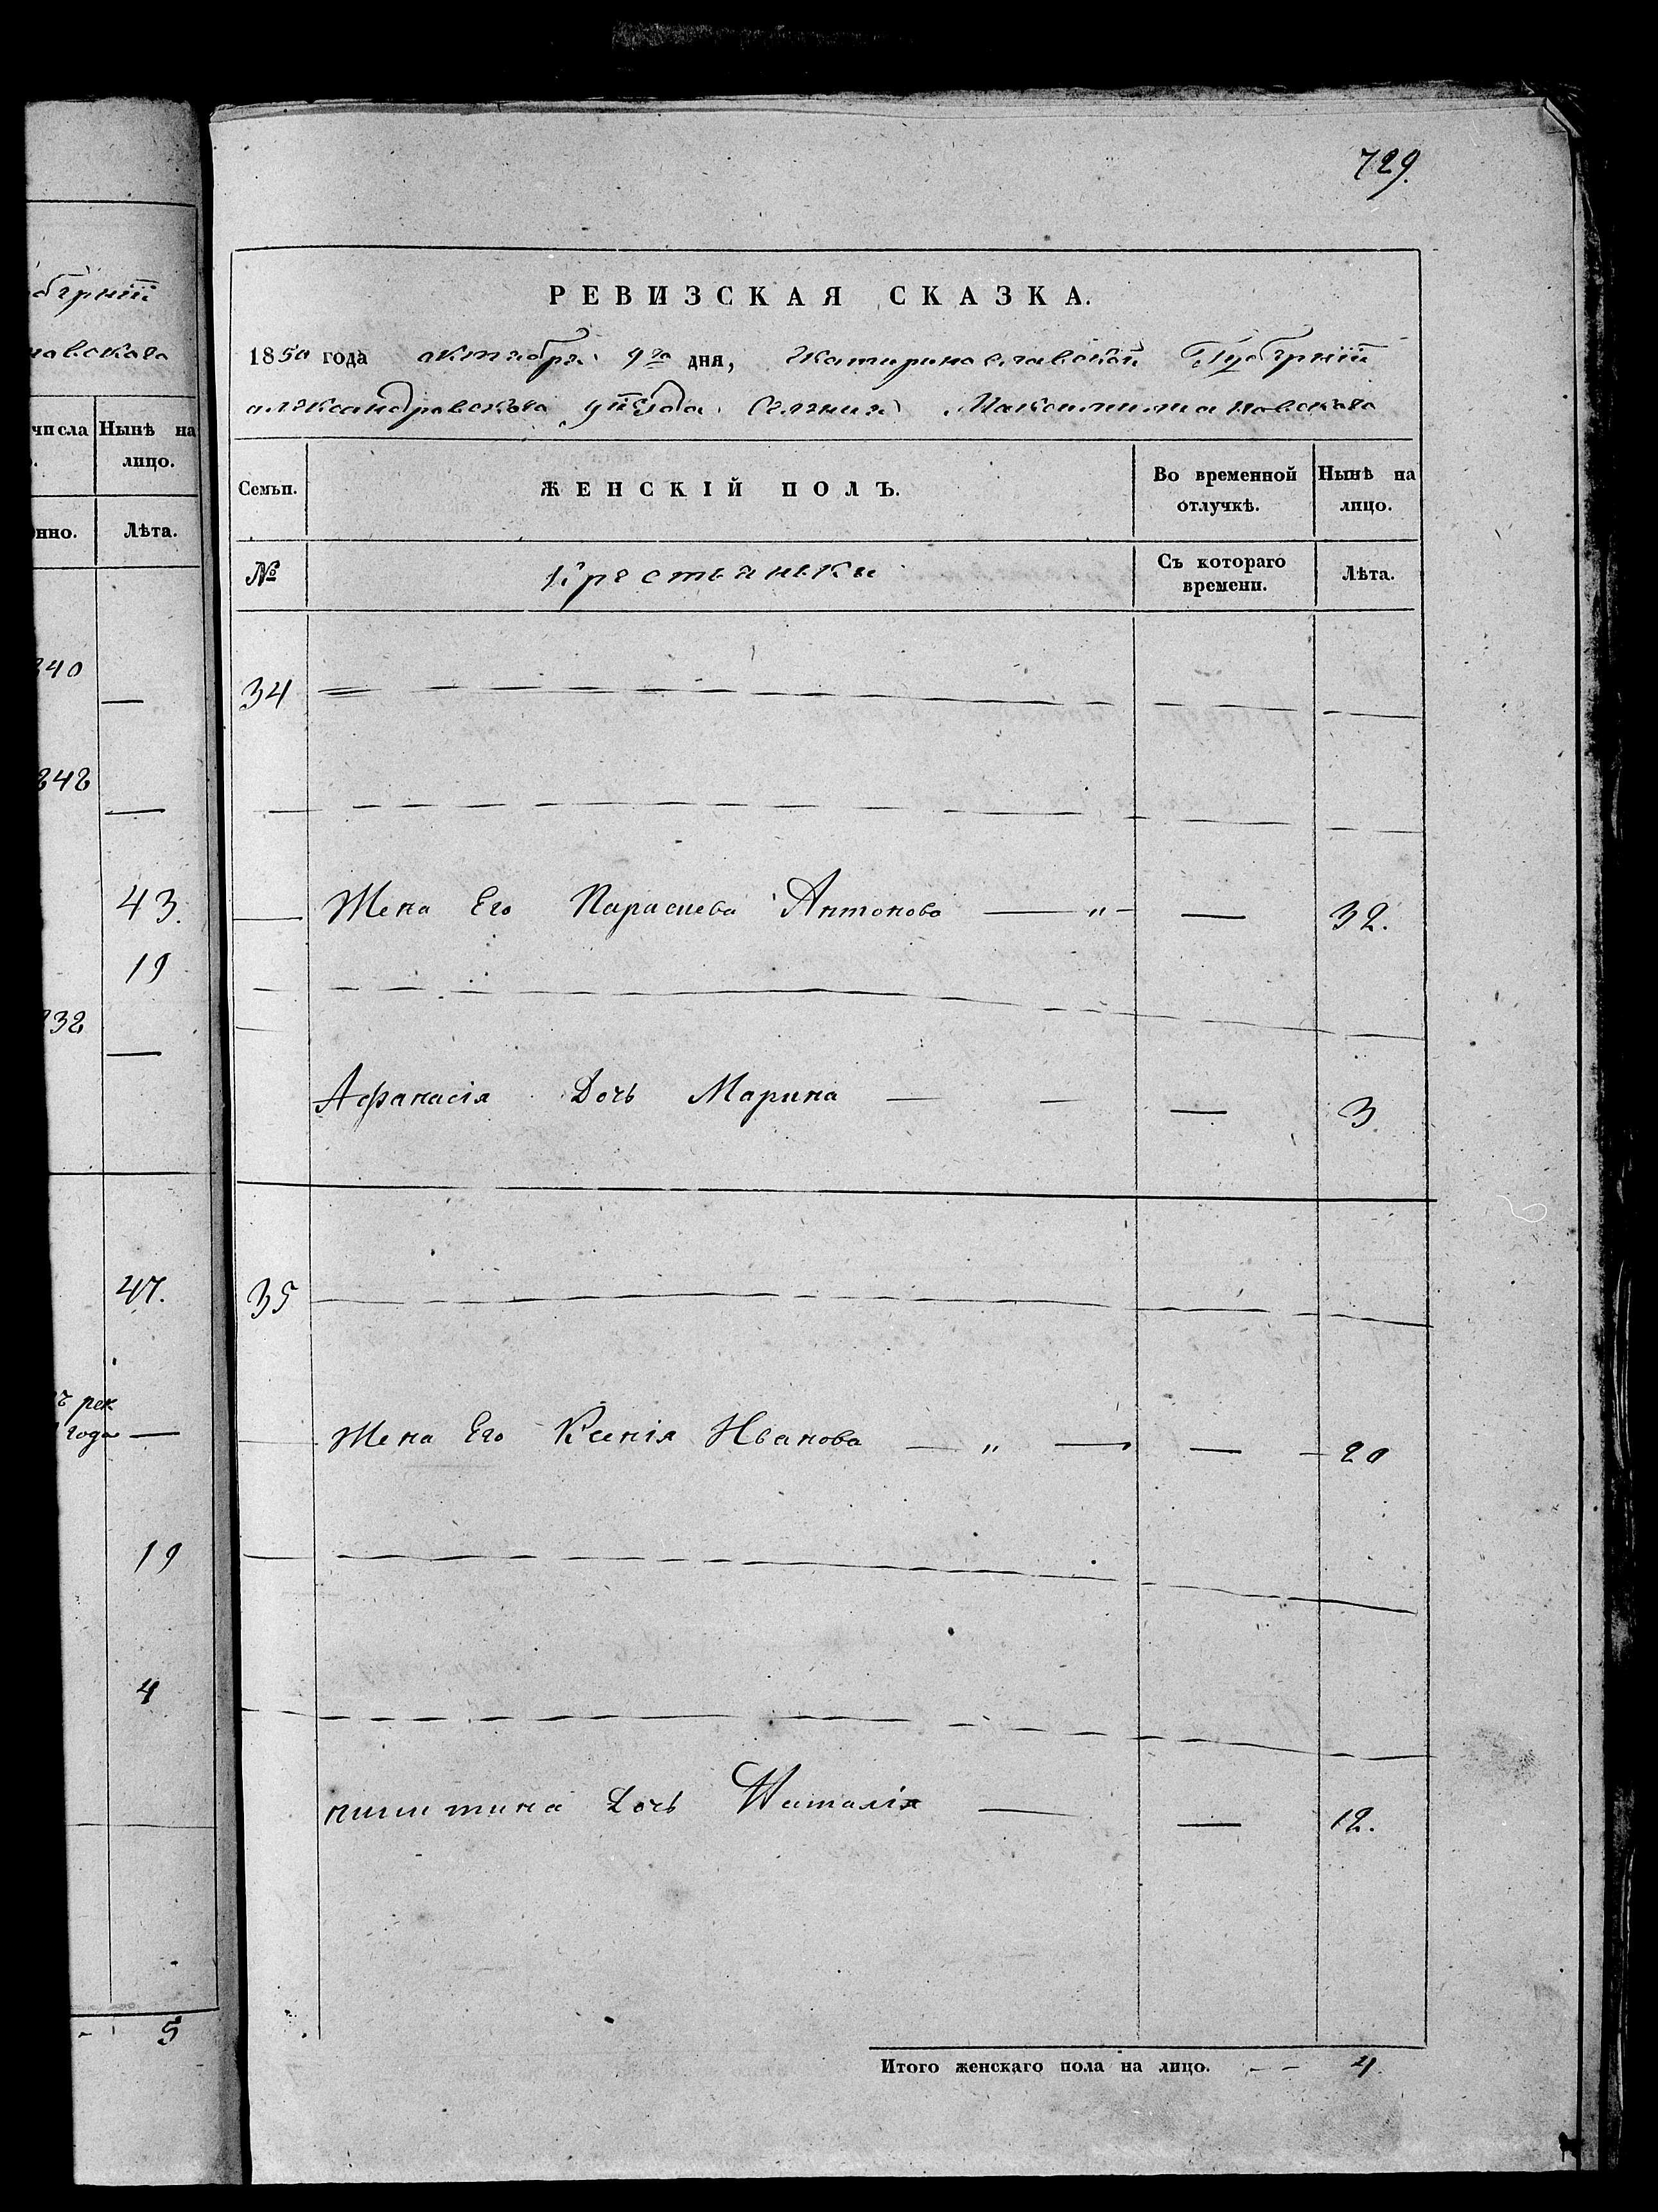 обернiи
навскаго
числа Нынѣ на
лицо.
нно. Лѣта.
240
242
43.
19
232
47.
рек
года
19
4
5
729.
РЕВИЗСКАЯ СКАЗКА.
1850 года октября 9го дня, Екатеринославской Губернiи
александровскаго уѣзда Селенiя Максимилиановскаго
Семьи. ЖЕНСКІЙ ПОЛЪ. Во временной отлучкѣ. Нынѣ на лицо.
№ Крестьяньки Съ котораго времени. Лѣта.
34
Жена Его Параскева Антонова — " — — 32.
Афанасiя Дочь Марина — — — 3
35
Жена Его Ксенiя Иванова — " — — 20
Дочь Наталiя — — 12.
Итого женскаго пола на лицо. - - 4